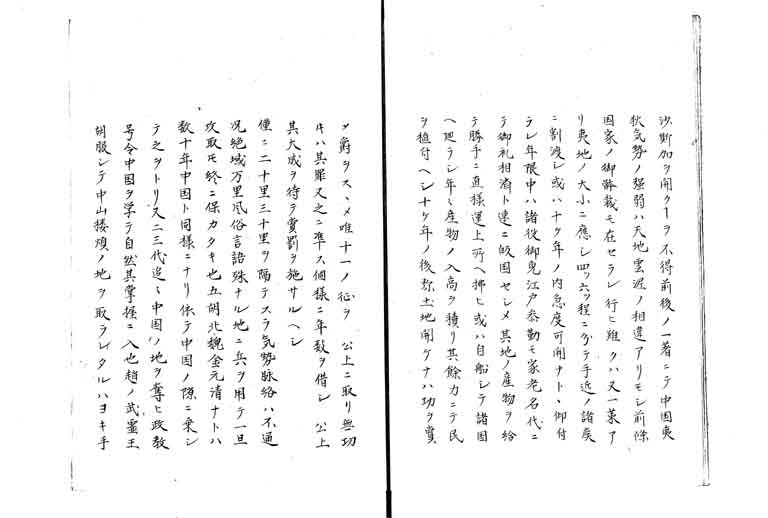 沙斯加ヲ開クヿヲ不得前後ノ一著ニテ中国夷
狄気勢ノ強弱ハ天地雲泥ノ相違アリモシ前條
国家ノ御裁モ在セラレ行ヒ難クハ又一策ア
リ夷地ノ大小ニ應シ四ツ六ツ程ニ分テ手近ノ諸矦
ニ割渡シ或ハ十ケ年ノ内急度可開ナト丶御付
ラレ年限中ハ諸役御免江戸参勤モ家老名代ニ
テ御礼相済ト速ニ皈国セシメ其地ノ産物ヲ給
テ勝手ニ直様運上所ヘ拂ヒ或ハ自船シテ諸国
ヘ廻ラシ年々産物ノ入高ヲ積リ其餘力ニテ民
ヲ植付ヘシ十ケ年ノ後弥土地開ケナハ功ヲ賞
シ爵ヲスヽメ唯十一ノ征ヲ 公上ニ取リ無功
ナハ其罪又之ニ準ス個様ニ年数ヲ借シ 公上
其大成ヲ待テ賞罰ヲ施サルヘシ
僅ニ二十里三十里ヲ隔テスラ気勢脉絡ハ不通
况絶域万里風俗言語殊ナル地ニ兵ヲ用テ一旦
攻取モ終ニ保カタキ也五胡北魏金元清ナトハ
数十年中国ト同様ニナリ依テ中国ノ隙ニ乗シ
テ之ヲトリ又二三代追々中国ノ地ヲ奪ヒ政教
号令中国ヲ学テ自然其掌握ニ入也趙ノ武霊王
胡服シテ中山楼煩ノ地ヲ取ラレタルハヨキ手